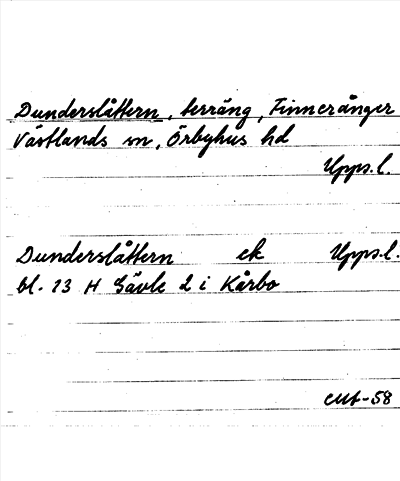 Dunderslåttern, terräng, Finneränger
Västlands sn, Örbyhus hd
Upps.l.
Dunderslåttern ek Upps.l.
bl. 13 H Gävle d i Kårbo